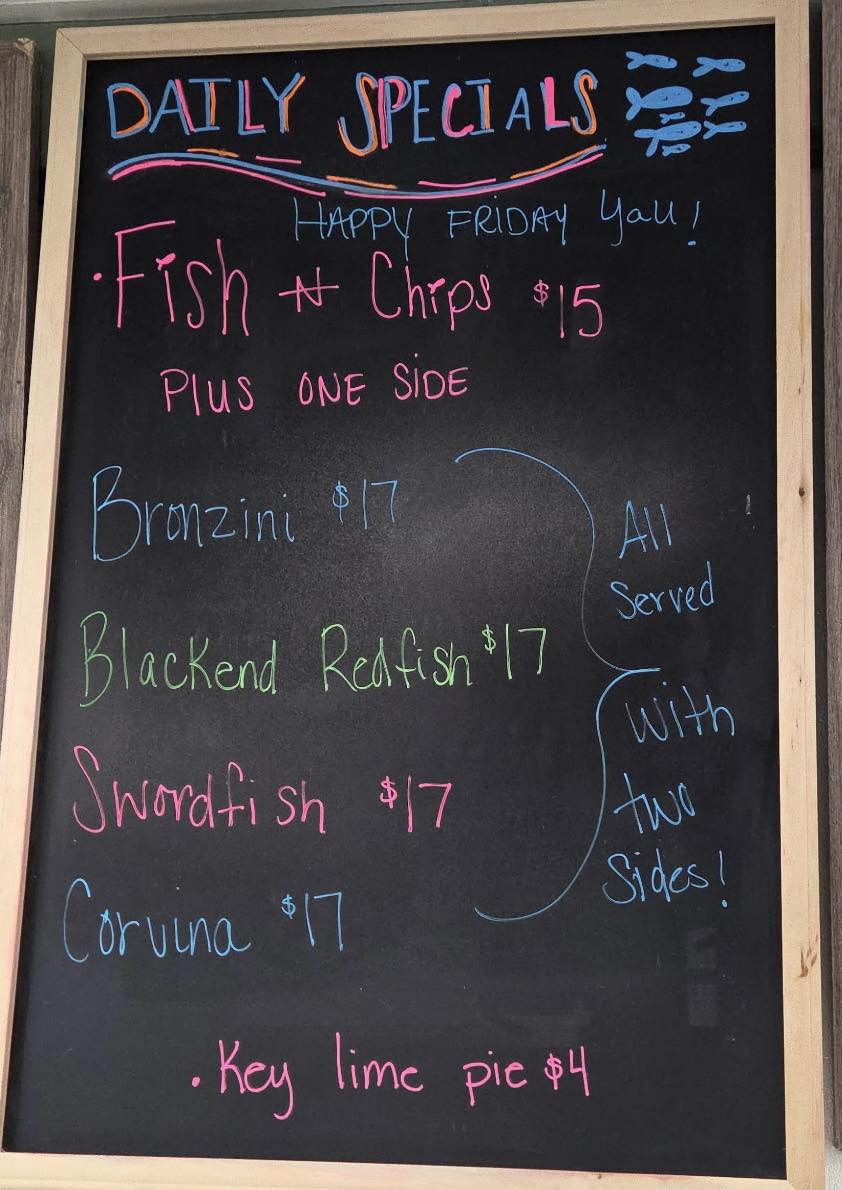 DAILY SPECIALS
HAPPY FRIDAY Yall!
• Fish N Chips $15
PLUS ONE SIDE
Bronzini $17
Blackend Redfish $17
Swordfish $17
Corvina $17
All
Served
With
two
Sides!
• Key lime pie $4